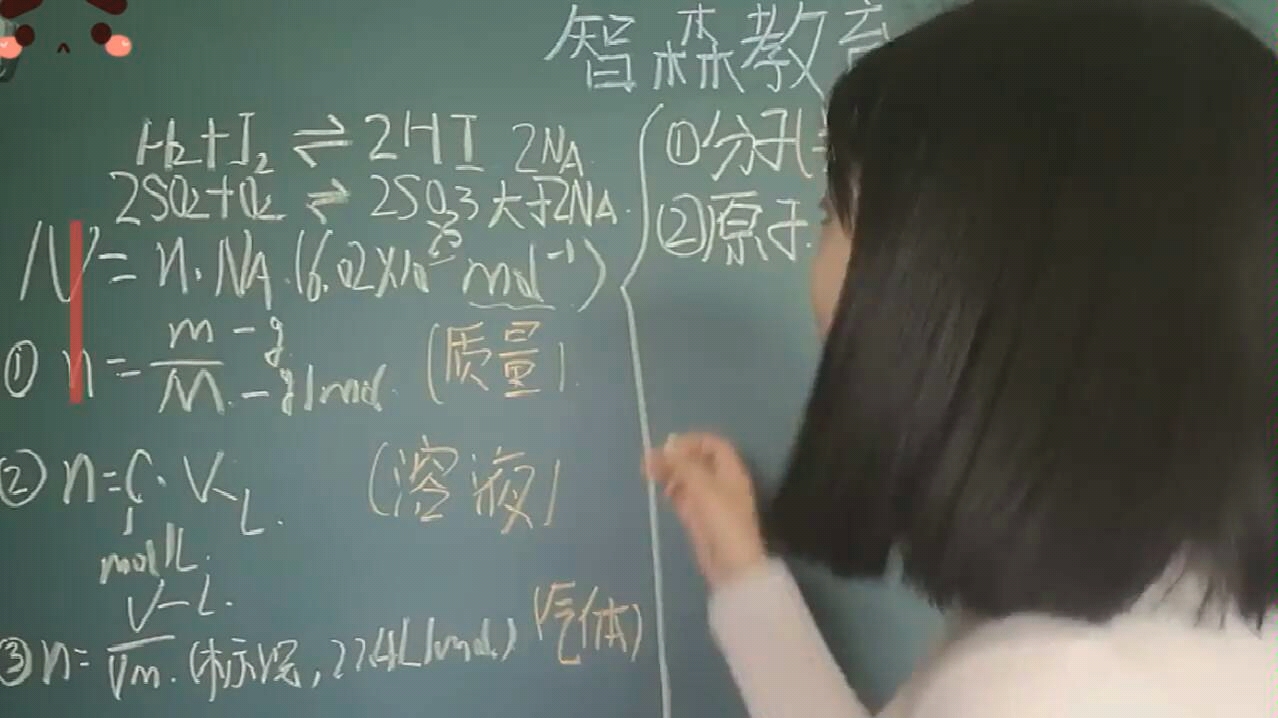 智森教育
H₂+I₂ ⇌ 2HI 2NA
2SO₂+O₂ ⇌ 2SO₃ 大于2NA.
N=n·NA.(6.02×10²³ mol⁻¹)
① n= m-g / M-g/mol. (质量)
② n=C·V-L.
(溶液)
mol/L.
③ n= V-L. / Vm. (标况,22.4L/mol) (气体)
①分子
②原子.